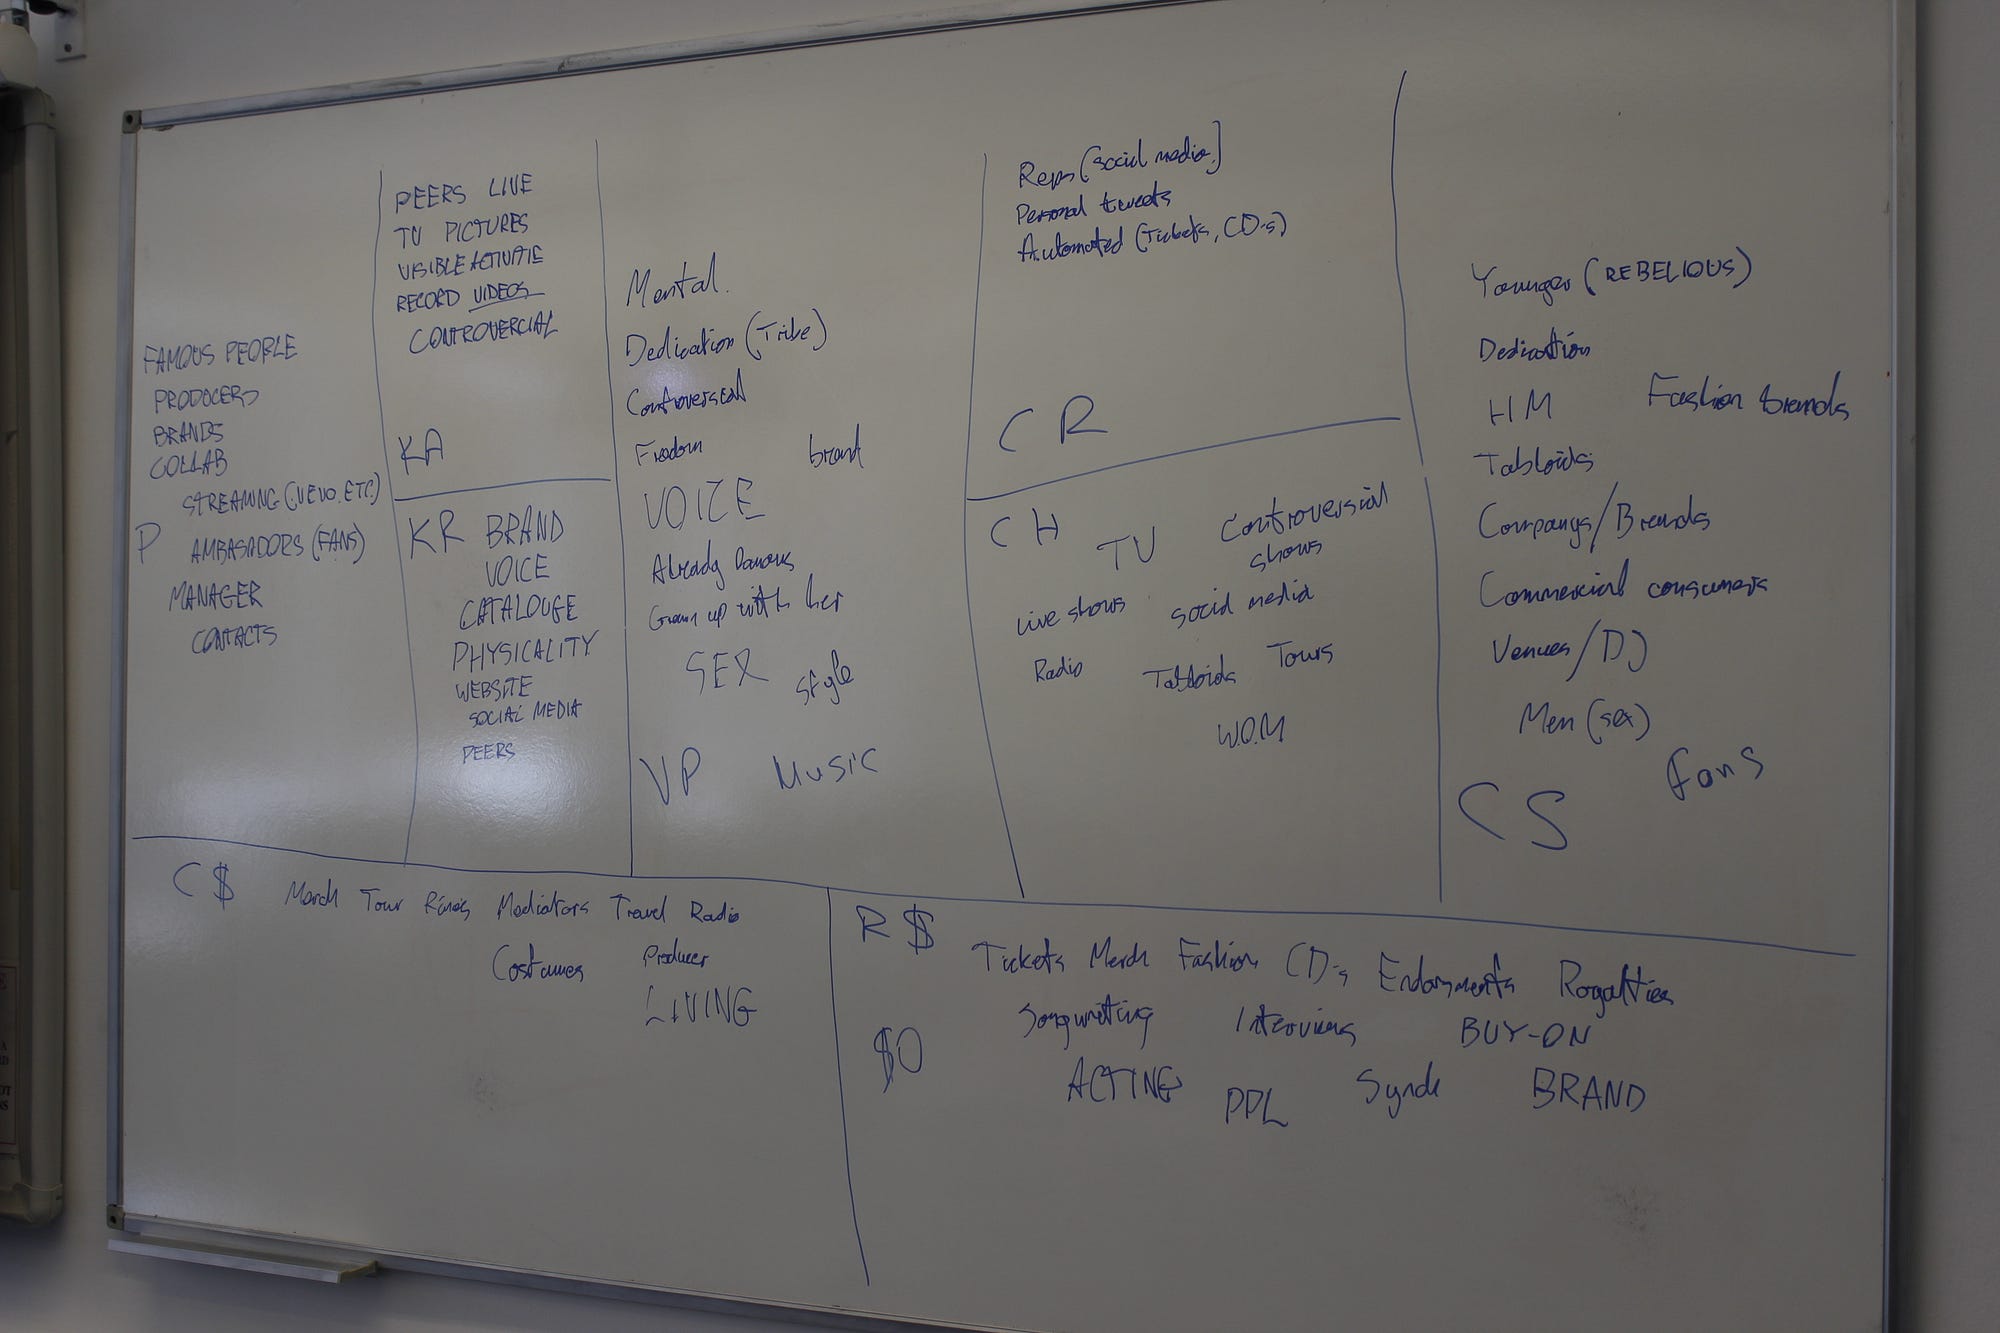 FAMOUS PEOPLE
PRODUCERS
BRANDS
COLLAB
STREAMING (VEVO. ETC)
P AMBASADORS (FANS)
MANAGER
CONTACTS
PEERS LIVE
TV PICTURES
VISIBLE
RECORD VIDEOS
CONTROVERCIAL
KA
KR BRAND
VOICE
CATALOUGE
PHYSICALITY
WEBSITE
SOCIAL MEDIA
PEERS
Mental.
Dedication (Tribe)
Controversial
brand
VOICE
Already
Grown up with her
SEX style
VP Music
Reps (social media)
Personal tweets
Automated (Tickets, CD-s)
CR
CH TV Controversial
shows
Live shows social media
Radio Tabloids Tours
W.O.M
Younger (REBELIOUS)
Dedication
HM Fashion brands
Tabloids
Companys/Brands
Commercial consumers
Venues/DJ
Men (sex)
fans
CS
C$ Merch Tour Mediators Travel Radio
Costumes Producer
LIVING
R$ Tickets Merch Fashion CD-s Endorsments Royalties
Songwriting Interviews BUY-ON
$0 ACTING PPL Synch BRAND